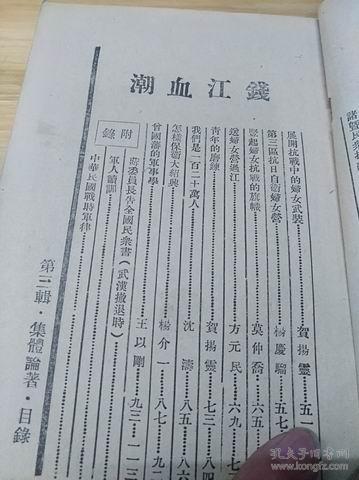 錢江血潮
展開抗戰中的婦女武裝 賀揚靈 五一
第三區抗日自衛婦女營 楊慶騮 五七
豎起婦女抗戰的旗幟 莫仲喬 六五
送婦女營過江 方元民 六九
青年的磨練 賀揚靈 七三 八四
我們是一百二十萬人 沈濤 八五 八六
怎樣保衛大紹興 楊介一 八七 九二
曾國藩的軍事學 王以剛 九三 一一三
附錄
蔣委員長告全國民衆書(武漢撤退時)
軍人讀訓
中華民國戰時軍律
第三輯・集體論著・目錄
孔夫子旧书网